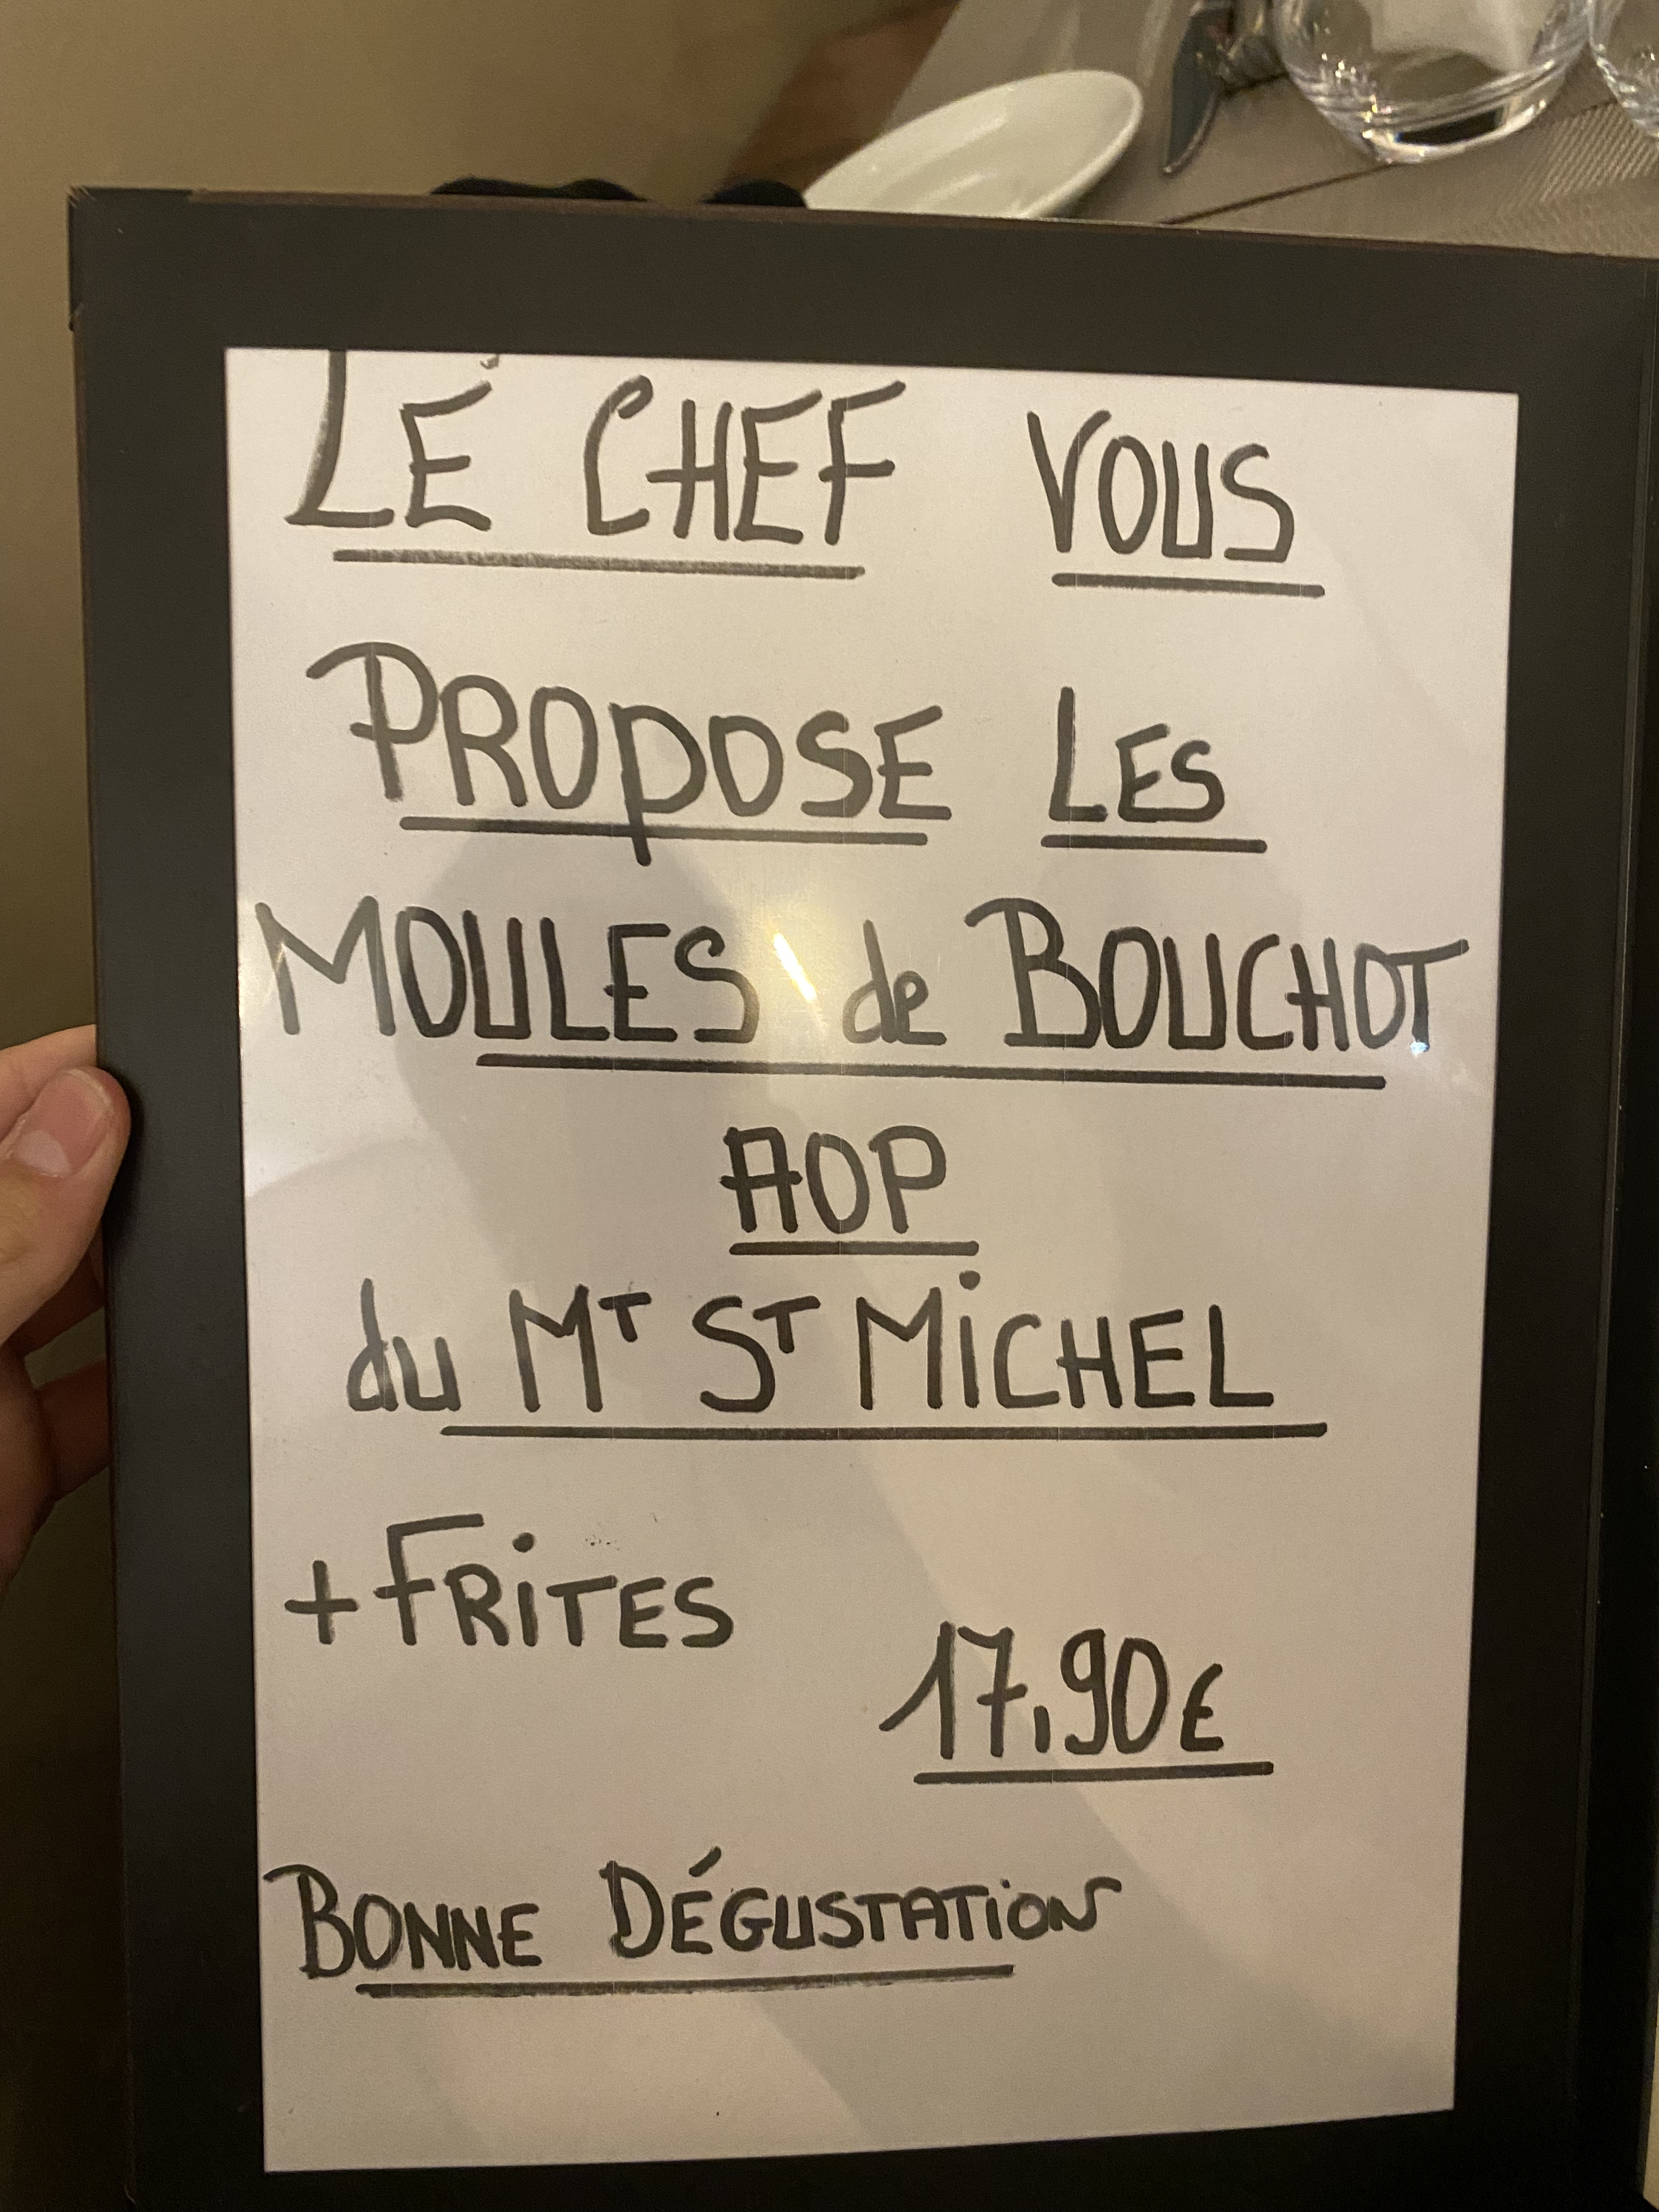 LE CHEF VOUS
PROPOSE LES
MOULES de BOUCHOT
AOP
du MT ST MiCHEL
+ FRiTES
17,90€
BONNE DÉGUSTATiON